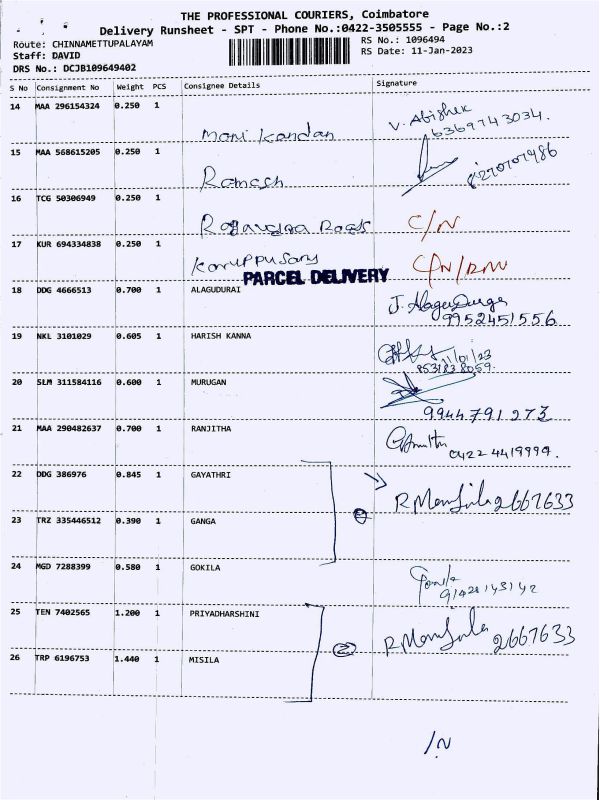 THE PROFESSIONAL COURIERS, Coimbatore
Delivery Runsheet - SPT - Phone No.:0422-3505555 - Page No.:2
Route: CHINNAMETTUPALAYAM
RS No.: 1096494
Staff: DAVID
RS Date: 11-Jan-2023
DRS No.: DCJB109649402
S No Consignment No Weight PCS Consignee Details Signature
14 MAA 296154324 0.250 1 Mani Kandan V. Abishek
6369743034.
15 MAA 568615205 0.250 1 Ramesh
16 TCG 50306949 0.250 1 C/N
17 KUR 694334838 0.250 1 Karuppusamy C/N/RNN
PARCEL DELIVERY
18 DDG 4666513 0.700 1 ALAGUDURAI J. AlaguDurai
9952451556
19 NKL 3101029 0.605 1 HARISH KANNA
11/01/23
8531838059.
20 SLM 311584116 0.600 1 MURUGAN
9944791273
21 MAA 290482637 0.700 1 RANJITHA
0422 4419999.
22 DDG 386976 0.845 1 GAYATHRI R Manjula 2667633
23 TRZ 335446512 0.390 1 GANGA
24 MGD 7288399 0.580 1 GOKILA
25 TEN 7402565 1.200 1 PRIYADHARSHINI R Manjula 2667633
2
26 TRP 6196753 1.440 1 MISILA
/N